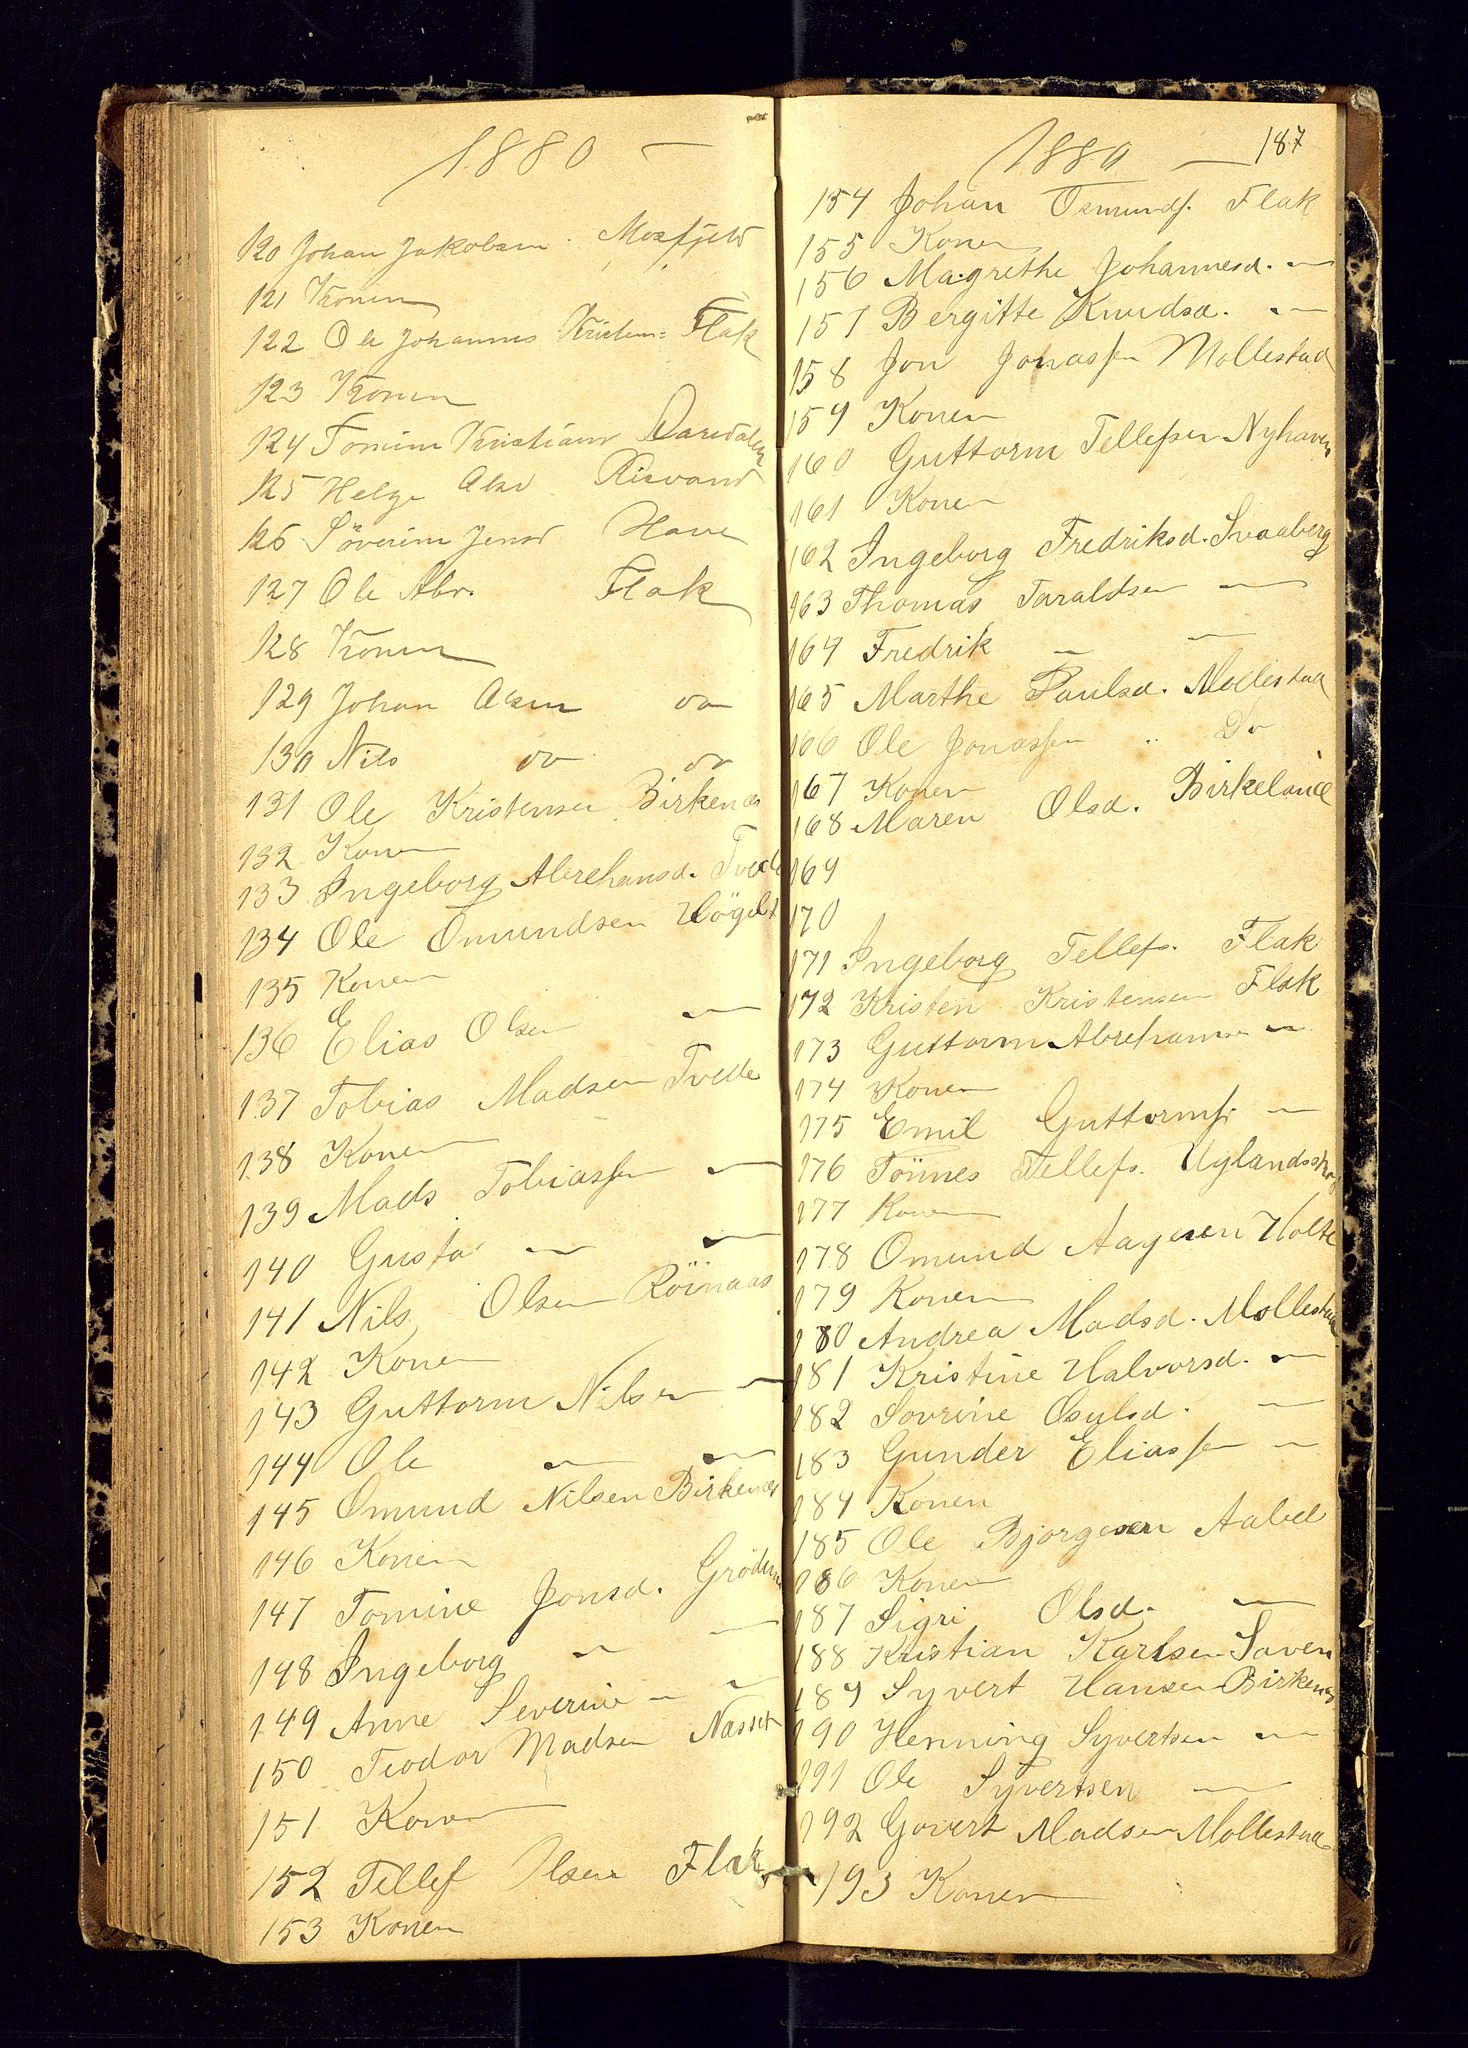 1880 —
120 Johan Jakobsen Mosfjeld
121 Konen
122 Ole Johannes Kristens: Flak
123 Konen
124 Tomine Kristians
125 Helge Alsd Risvand
126 Söverine Jensd Have
127 Ole Abr. Flak
128 Konen
129 Johan Olsen do
130 Nils do do
131 Ole Kristensen Birkenes
132 Konen
133 Ingeborg Abrehamsd. Tvede
134 Ole Omundsen Högelt
135 Konen
136 Elias Olsen —
137 Tobias Madsen Tvede
138 Konen
139 Mads Tobiassen —
140 Gustav — —
141 Nils Olsen Röinaas
142 Konen
143 Guttorm Nilsen —
144 Ole — —
145 Omund Nilsen Birkenes
146 Konen
147 Tomine Jonsd.
148 Ingeborg — —
149 Anne Severine — —
150 Teodor Madsen Nasset
151 Konen
152 Tellef Olsen Flak
153 Konen
1880 — 187
154 Johan Osmunds. Flak
155 Konen
156 Magrethe Johannesd. —
157 Bergitte Knudsd. —
158 Jon Jonassen Mollestad
159 Konen
160 Guttorm Tellefsen Nyhaven
161 Konen
162 Ingeborg Fredriksd. Svaaberg
163 Thomas Taraldsen —
164 Fredrik — —
165 Marthe Paulsd. Mollestad
166 Ole Jonassen .. Do
167 Konen
168 Maren Olsd. Birkeland
169
170
171 Ingeborg Tellefs. Flak
172 Kristen Kristensen Flak
173 Guttorm Abrehamsen —
174 Konen
175 Emil Guttorms. —
176 Tönnes Tellefs. Uglandsskog
177 Konen
178 Omund Aagesen Holte
179 Konen
180 Andrea Madsd. Mollestad
181 Kristine Halvorsd. —
182 Sovrine Osulsd. —
183 Gunder Eliassen —
184 Konen
185 Ole Bjorgesen Aabel
186 Konen
187 Sigri Olsd. —
188 Kristian Karlsen Saven
189 Syvert Hansen Birkenes
190 Henning Syvertsen —
191 Ole Syvertsen —
192 Govert Madsen Mollestad
193 Konen